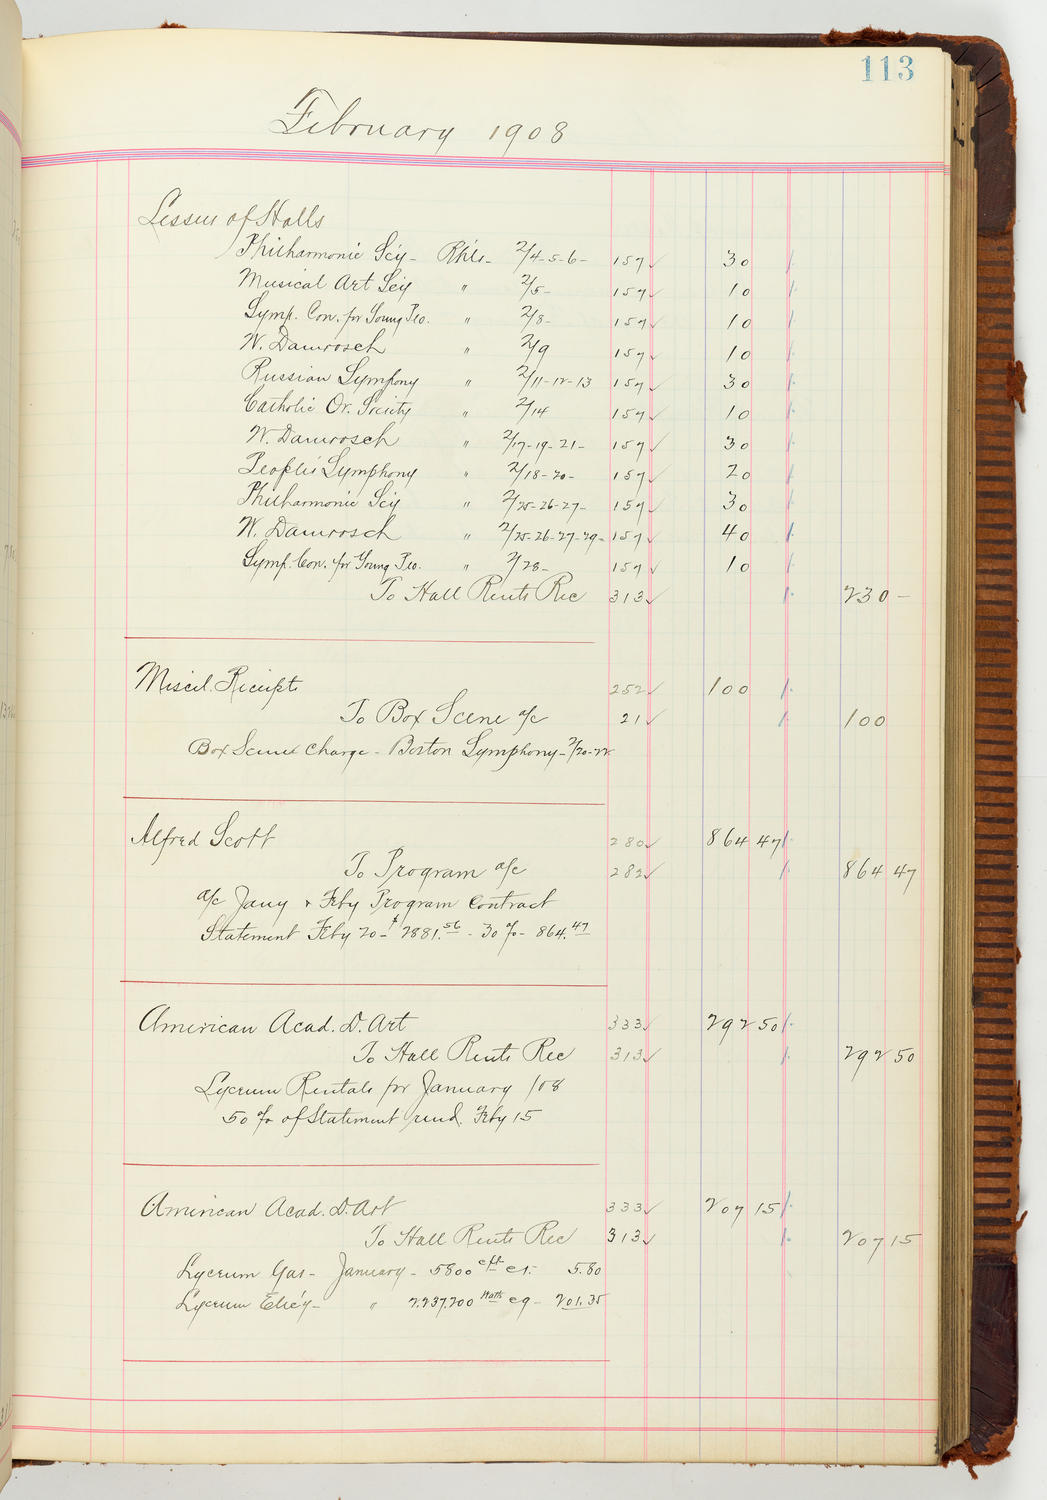 113
February 1908
Lessees of Halls
Philharmonic Scy - Rhls - 2/4-5-6- 157 ✓ 30
Musical Art Scy " 2/5- 157 ✓ 10
Symp. Con. for Young Peo. " 2/8- 157 ✓ 10
W. Damrosch " 2/9 157 ✓ 10
Russian Symphony " 2/11-12-13 157 ✓ 30
Catholic Or. Society " 2/14 157 ✓ 10
W. Damrosch " 2/17-19-21- 157 ✓ 30
Peoples Symphony " 2/18-20- 157 ✓ 20
Philharmonic Scy " 2/25-26-27- 157 ✓ 30
W. Damrosch " 2/25-26-27-29- 157 ✓ 40
Symp. Con. for Young Peo. " 2/28- 157 ✓ 10
To Hall Rents Rec 313 ✓ 230 -
Miscel. Receipts 252 ✓ 100
To Box Scene a/c 21 ✓ 100
Box Scene Charge - Boston Symphony - 2/20-22
Alfred Scott 280 ✓ 864 47
To Program a/c 282 ✓ 864 47
a/c Jany & Feby Program Contract
Statement Feby 20 - $2881.56 - 30% - 864.47
American Acad. D. Art 333 ✓ 292 50
To Hall Rents Rec 313 ✓ 292 50
Lyceum Rentals for January /08
50% of Statement rend. Feby 15
American Acad. D. Art 333 ✓ 207 15
To Hall Rents Rec 313 ✓ 207 15
Lyceum Gas - January - 5800 cft @ 1.- 5.80
Lyceum Elec'y - " 2.237.200 Watts @ 9 - 201.35